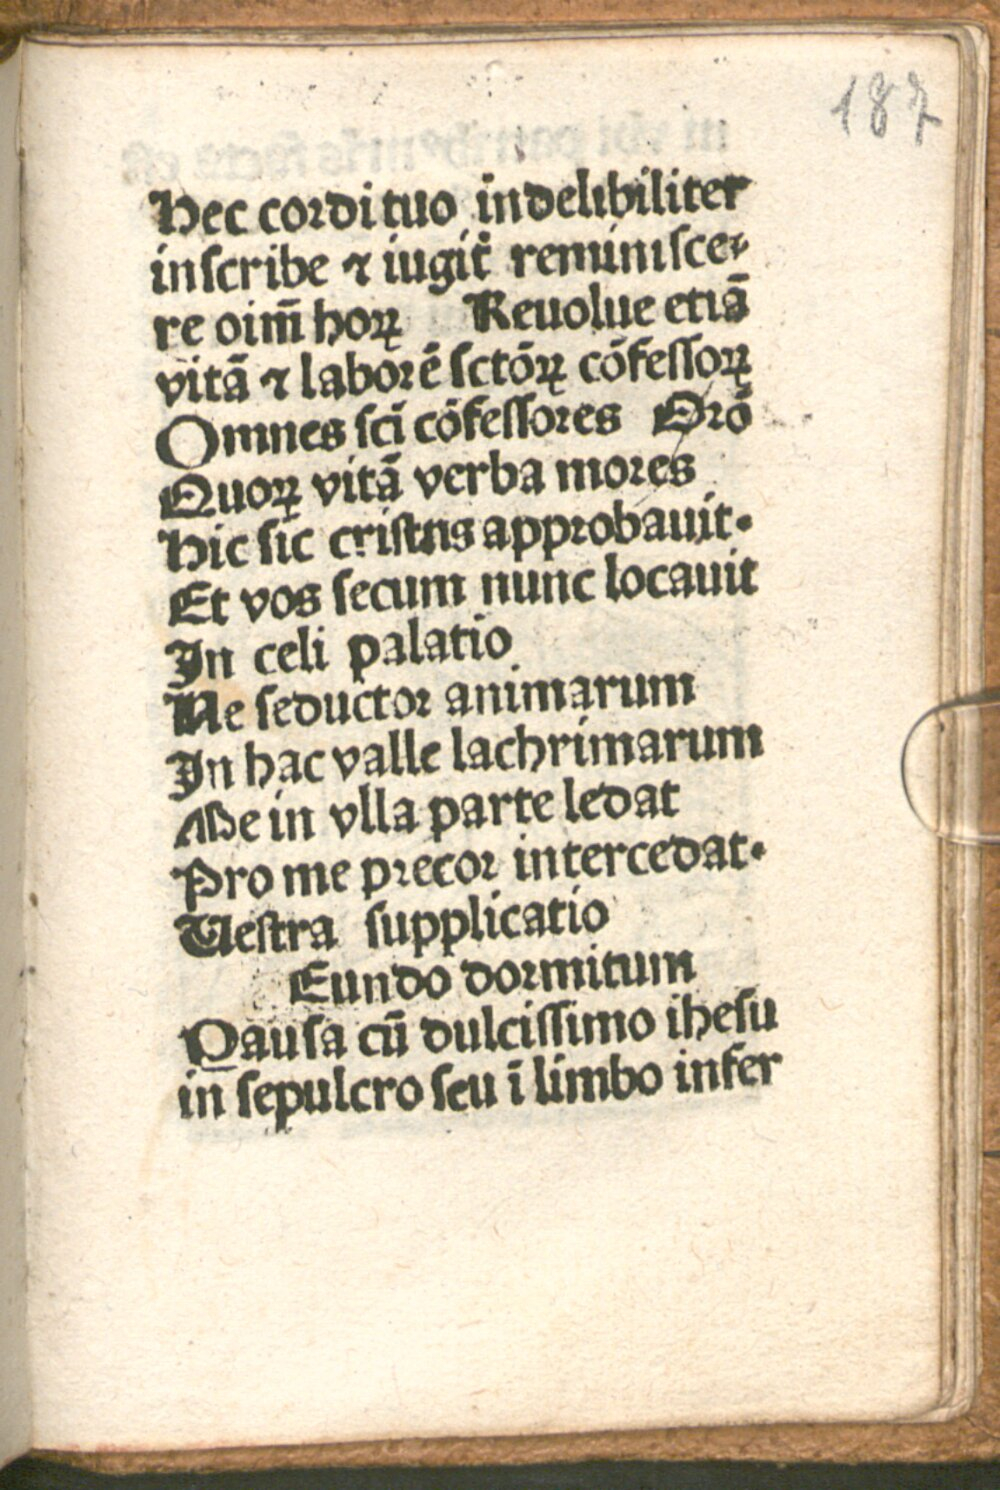 187
Hec cordi tuo indelibiliter
inscribe ⁊ iugit̛ reminisce⸗
re oim̄ hoꝝ Reuolue etiā
vitā ⁊ laborē sctōꝝ cōfessoꝝ
Omnes sci̅ cōfessores Orō
Quoꝝ vitā verba mores
Hic sic cristus approbauit.
Et vos secum nunc locauit
In celi palatio
Ne seductor animarum
In hac valle lachrimarum
Me in vlla parte ledat
Pro me precor intercedat.
Vestra supplicatio
Eundo dormitum
Pausa cū dulcissimo ihesu
in sepulcro seu ī limbo infer